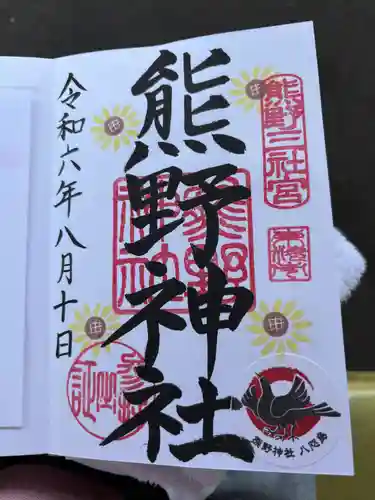 熊野三社宮
熊野神社
令和六年八月十日
参拝之証
熊野神社 八咫烏